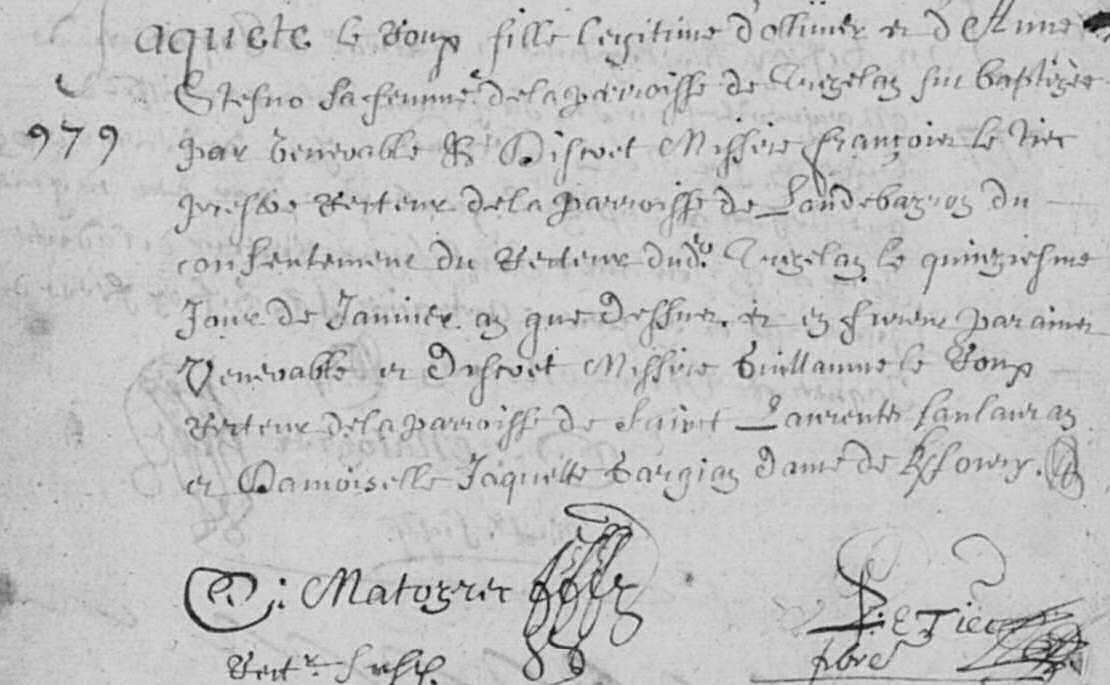 aquete le Roux fille legitime d'ollivier et d'Anne
Stephno sa femme de la parroisse de Tregelan fut baptizée
979
par venerable & Discret Missire françois le Tiec
presbre Recteur de la parroisse de Landebaeron du
consentement du Recteur dud. Tregelan le quinziesme
Jour de Janvier an que dessus. et en furent parainct
Venerable et Discret Missire Guillaume le Roux
Recteur de la parroisse de sainct Laurents
et Damoiselle Jaquette dame de
Matozrec
F: Le Tiec
Rect.r pbre